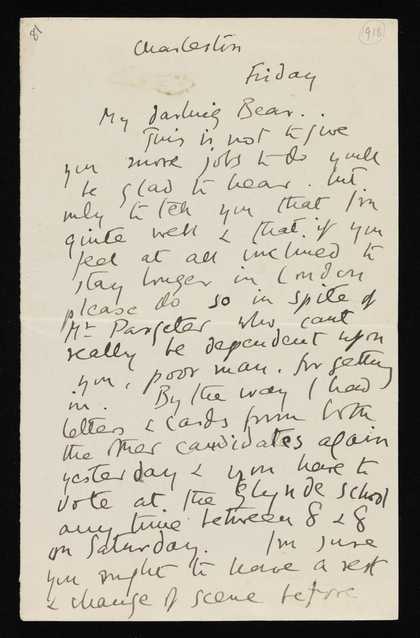 87
918
Charleston
Friday
My darling Bear..
This is not to give
you more jobs to do you'll
be glad to hear. but
only to tell you that I'm
quite well & that if you
feel at all inclined to
stay longer in London
please do so in spite of
Mr Pargeter who cant
really be dependent upon
you, poor man. for getting
in. By the way I had
letters & cards from both
the other candidates again
yesterday & you have to
vote at the Glynde School
any time between 8 & 8
on Saturday. I'm sure
you ought to have a rest
& change of scene before